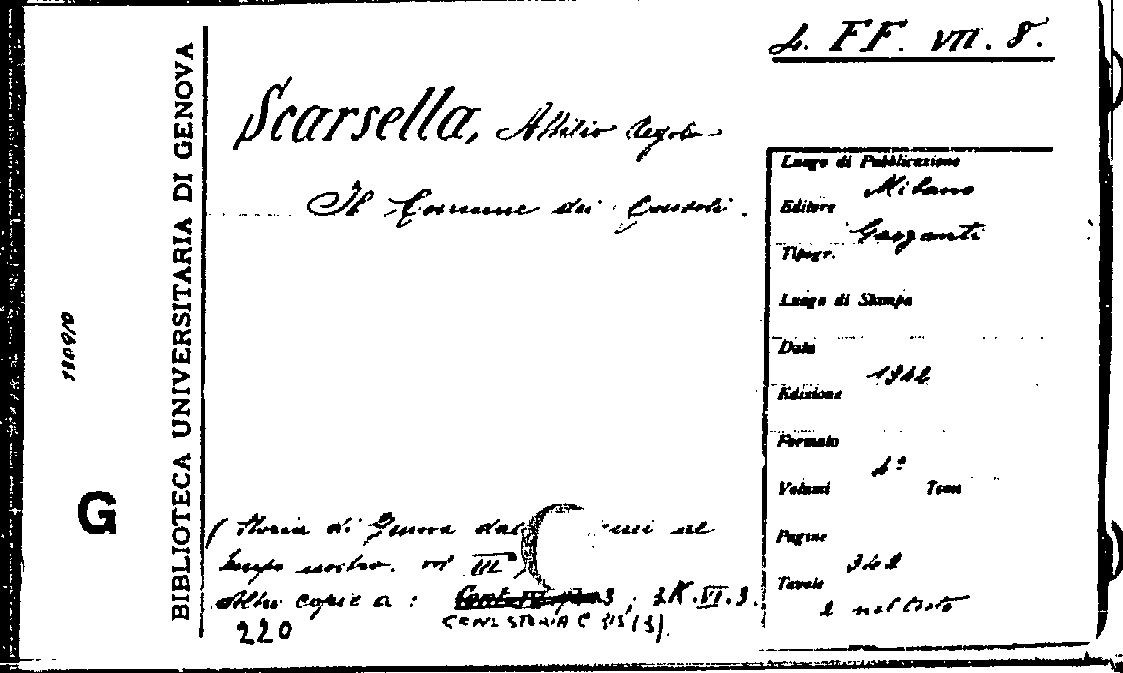 4. FF. VII. 8.
Scarsella, Attilio Regolo
Il Comune dei Consoli.
Luogo di Pubblicazione
Milano
Editore
Garzanti
Tipogr.
Luogo di Stampa
Data
1942
Edizione
Formato
4º
Volumi Tomi
Pagine
342
Tavole
2 nel testo
(Storia di Genova dal al
tempo nostro. vol III)
Altre copie a : 3 ; 2K.VI.3.
GEN. STORIA C
220
BIBLIOTECA UNIVERSITARIA DI GENOVA
G